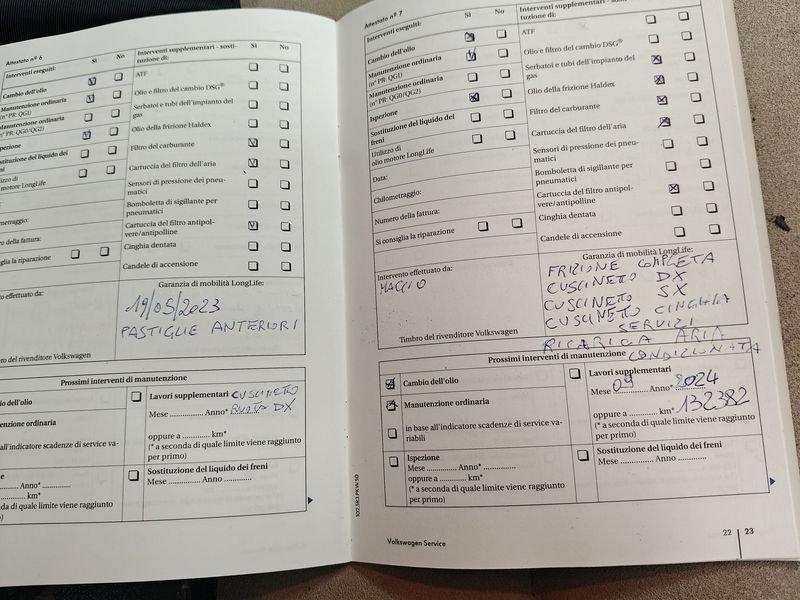 Attestato nº 6
Sì
No
Interventi eseguiti:
Cambio dell'olio
Manutenzione ordinaria
(nº PR: QG1)
Manutenzione ordinaria
(nº PR: QG0/QG2)
Ispezione
ostituzione del liquido dei
freni
lizzo di
o motore LongLife
metraggio:
o della fattura:
iglia la riparazione
Interventi supplementari - sosti-
tuzione di:
Sì
No
ATF
Olio e filtro del cambio DSG®
Serbatoi e tubi dell'impianto del
gas
Olio della frizione Haldex
Filtro del carburante
Cartuccia del filtro dell'aria
Sensori di pressione dei pneu-
matici
Bomboletta di sigillante per
pneumatici
Cartuccia del filtro antipol-
vere/antipolline
Cinghia dentata
Candele di accensione
o effettuato da:
Garanzia di mobilità LongLife:
19/05/2023
PASTIGLIE ANTERIORI
ro del rivenditore Volkswagen
Prossimi interventi di manutenzione
io dell'olio
tenzione ordinaria
all'indicatore scadenze di service va-
Lavori supplementari CUSCINETTO
Mese .............. Anno* RUOTA DX
oppure a .............. km*
(* a seconda di quale limite viene raggiunto
per primo)
ne
.............. Anno* ..............
.............. km*
da di quale limite viene raggiunto
o)
Sostituzione del liquido dei freni
Mese .............. Anno ..............
Attestato nº 7
Sì
No
Interventi eseguiti:
Cambio dell'olio
Manutenzione ordinaria
(nº PR: QG1)
Manutenzione ordinaria
(nº PR: QG0/QG2)
Ispezione
Sostituzione del liquido dei
freni
Utilizzo di
olio motore LongLife
Data:
Chilometraggio:
Numero della fattura:
Si consiglia la riparazione
Interventi supplementari - sosti-
tuzione di:
ATF
Olio e filtro del cambio DSG®
Serbatoi e tubi dell'impianto del
gas
Olio della frizione Haldex
Filtro del carburante
Cartuccia del filtro dell'aria
Sensori di pressione dei pneu-
matici
Bomboletta di sigillante per
pneumatici
Cartuccia del filtro antipol-
vere/antipolline
Cinghia dentata
Candele di accensione
Intervento effettuato da:
MACCIO
Timbro del rivenditore Volkswagen
Garanzia di mobilità LongLife:
FRIZIONE COMPLETA
CUSCINETTO DX
CUSCINETTO SX
CUSCINETTO CINGHIA
SERVIZI
RICARICA ARIA
CONDIZIONATA
Prossimi interventi di manutenzione
Cambio dell'olio
Manutenzione ordinaria
in base all'indicatore scadenze di service va-
riabili
Lavori supplementari
Mese 09 Anno* 2024
oppure a 132382 km*
(* a seconda di quale limite viene raggiunto
per primo)
Ispezione
Mese .............. Anno* ..............
oppure a .............. km*
(* a seconda di quale limite viene raggiunto
per primo)
Sostituzione del liquido dei freni
Mese .............. Anno ..............
Volkswagen Service
22
23